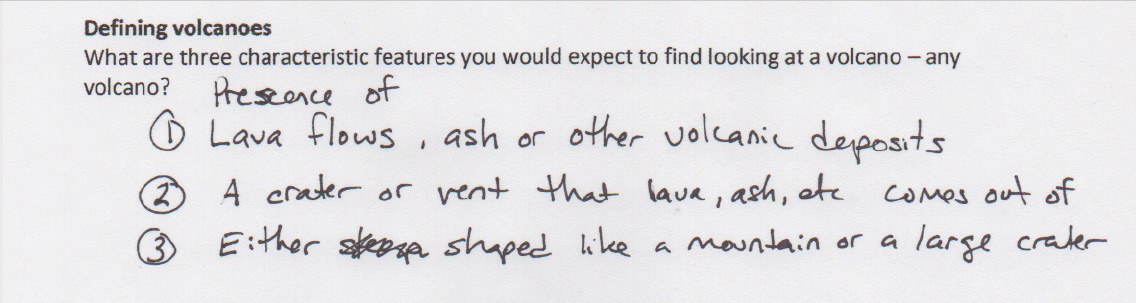 Defining volcanoes
What are three characteristic features you would expect to find looking at a volcano – any
volcano?
Presence of
① Lava flows, ash or other volcanic deposits
② A crater or vent that lava, ash, etc comes out of
③ Either shaped like a mountain or a large crater